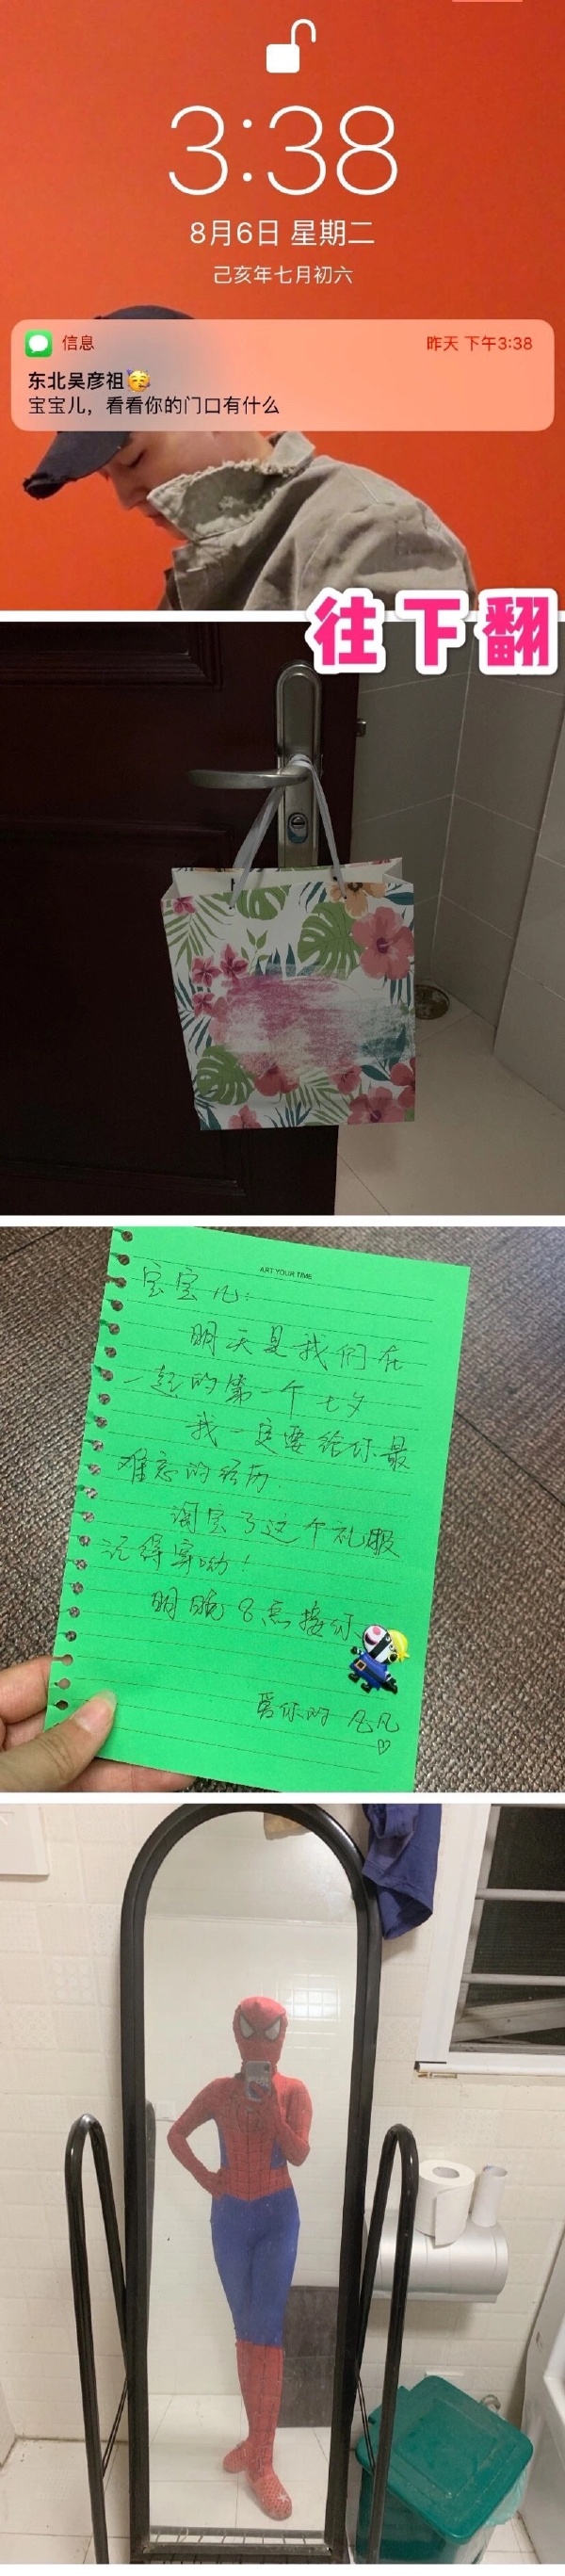 3:38
8月6日 星期二
己亥年七月初六
信息
昨天 下午3:38
东北吴彦祖🥳
宝宝儿，看看你的门口有什么
往下翻
ART YOUR TIME
宝宝儿：
明天是我们在
一起的第一个七夕
我一定要给你最
难忘的经历.
淘宝了这个礼服
记得穿呦！
明晚8点接你
爱你的 凡凡
♡